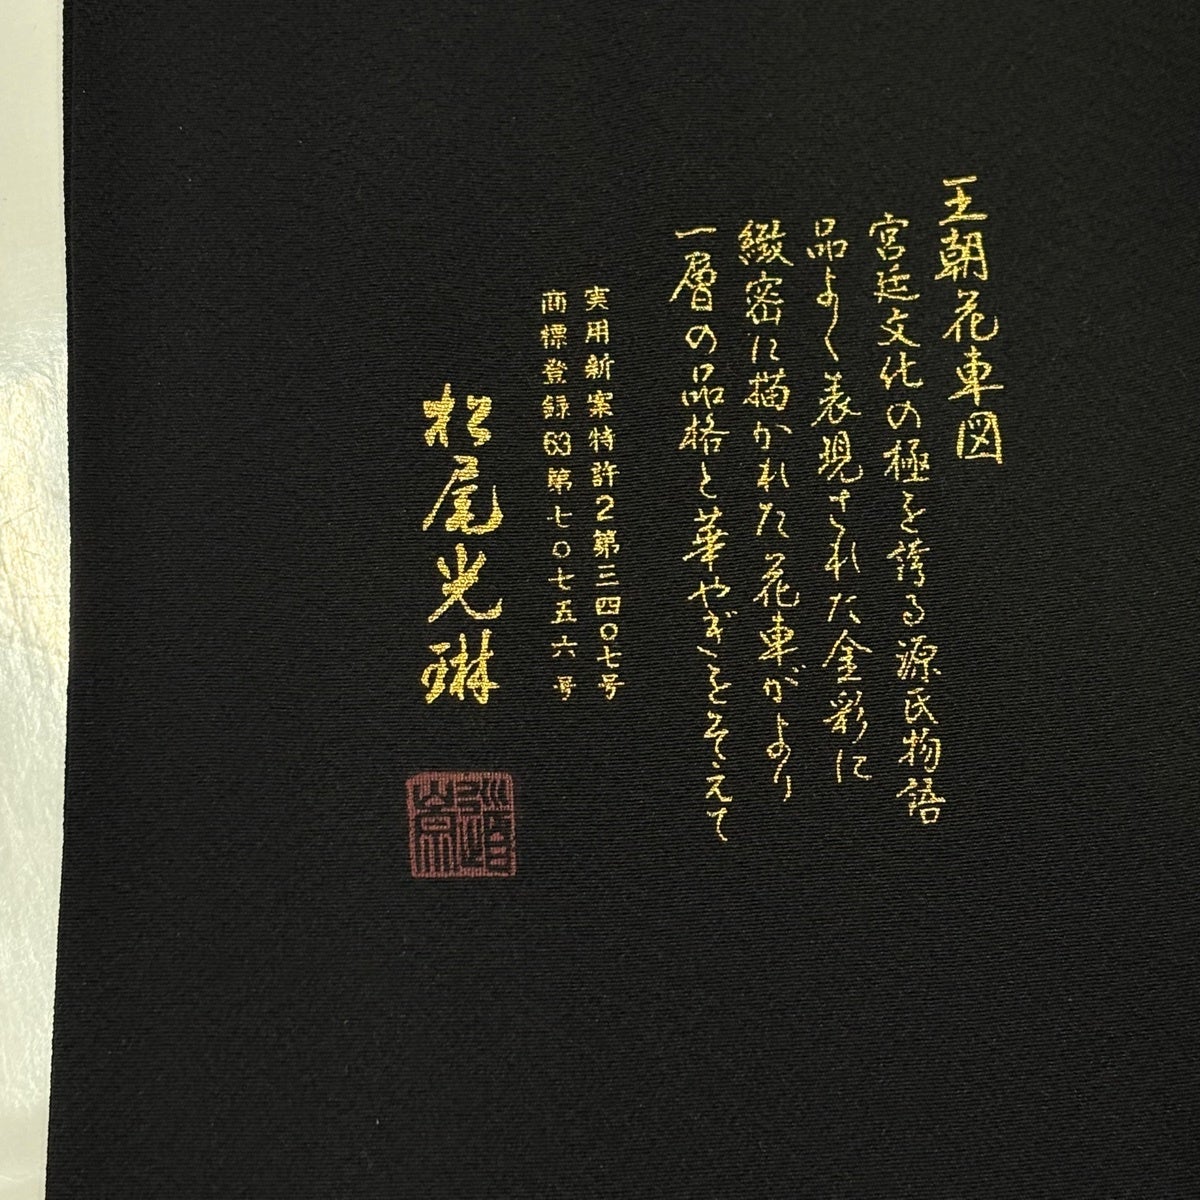 王朝花車図
宮廷文化の極を誇る源氏物語
品よく表現された金彩に
緻密に描かれた花車がより
一層の品格と華やぎをそえて
実用新案特許2第三四〇七号
商標登録63第七〇七五六号
松尾光琳